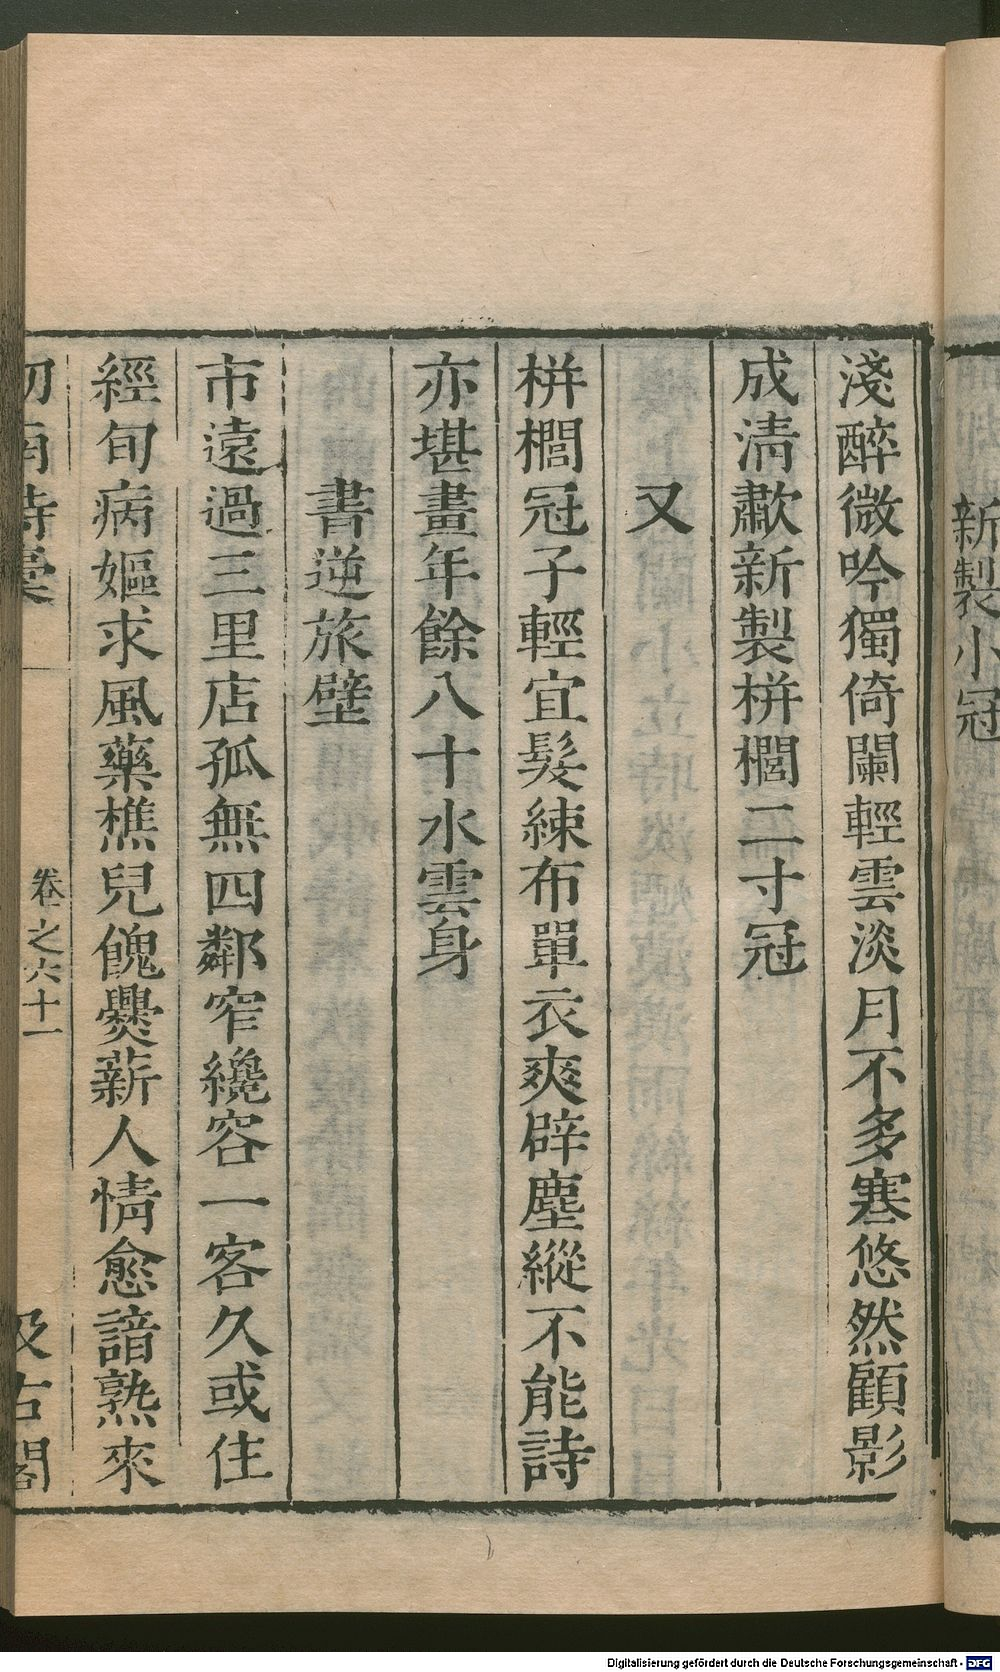 新製小冠
淺醉微吟獨倚闌輕雲淡月不多寒悠然顧影
成清歗新製栟櫚二寸冠
又
栟櫚冠子輕宜髮練布單衣爽辟塵縱不能詩
亦堪畫年餘八十水雲身
書逆旅壁
市遠過三里店孤無四鄰窄纔容一客久或住
經旬病嫗求風藥樵兒餽爨薪人情愈諳熟來
卷之六十一
汲古閣
Digitalisierung gefördert durch die Deutsche Forschungsgemeinschaft - DFG